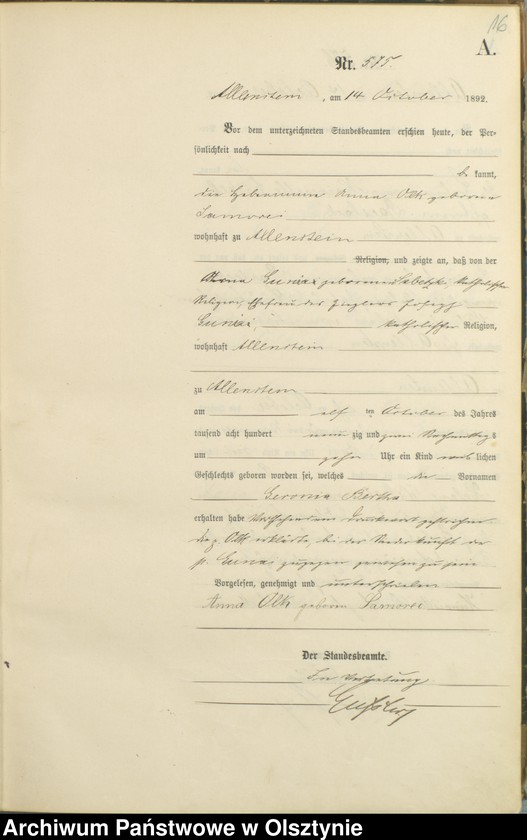 16
A.
Nr. 575.
Allenstein, am 14 October 1892.
Vor dem unterzeichneten Standesbeamten erschien heute, der Per-
sönlichkeit nach
be kannt,
die Hebamme Anna Olk geborene
Samorei
wohnhaft zu Allenstein
Religion, und zeigte an, daß von der
geborenen katholischer
Religion, Ehefrau des Zieglers Joseph
katholischer Religion,
wohnhaft Allenstein
zu Allenstein
am elf ten October des Jahres
tausend acht hundert neun zig und zwei Nachmittags
um zehn Uhr ein Kind weib lichen
Geschlechts geboren worden sei, welches die Vornamen
Bertha
erhalten habe Vorstehend ein Druckwort gestrichen.
Die p. Olk erklärte, bei der Niederkunft der
p. zugegen gewesen zu sein
Vorgelesen, genehmigt und unterschrieben
Anna Olk geborene Samorei
Der Standesbeamte.
In Vertretung
Archiwum Państwowe w Olsztynie